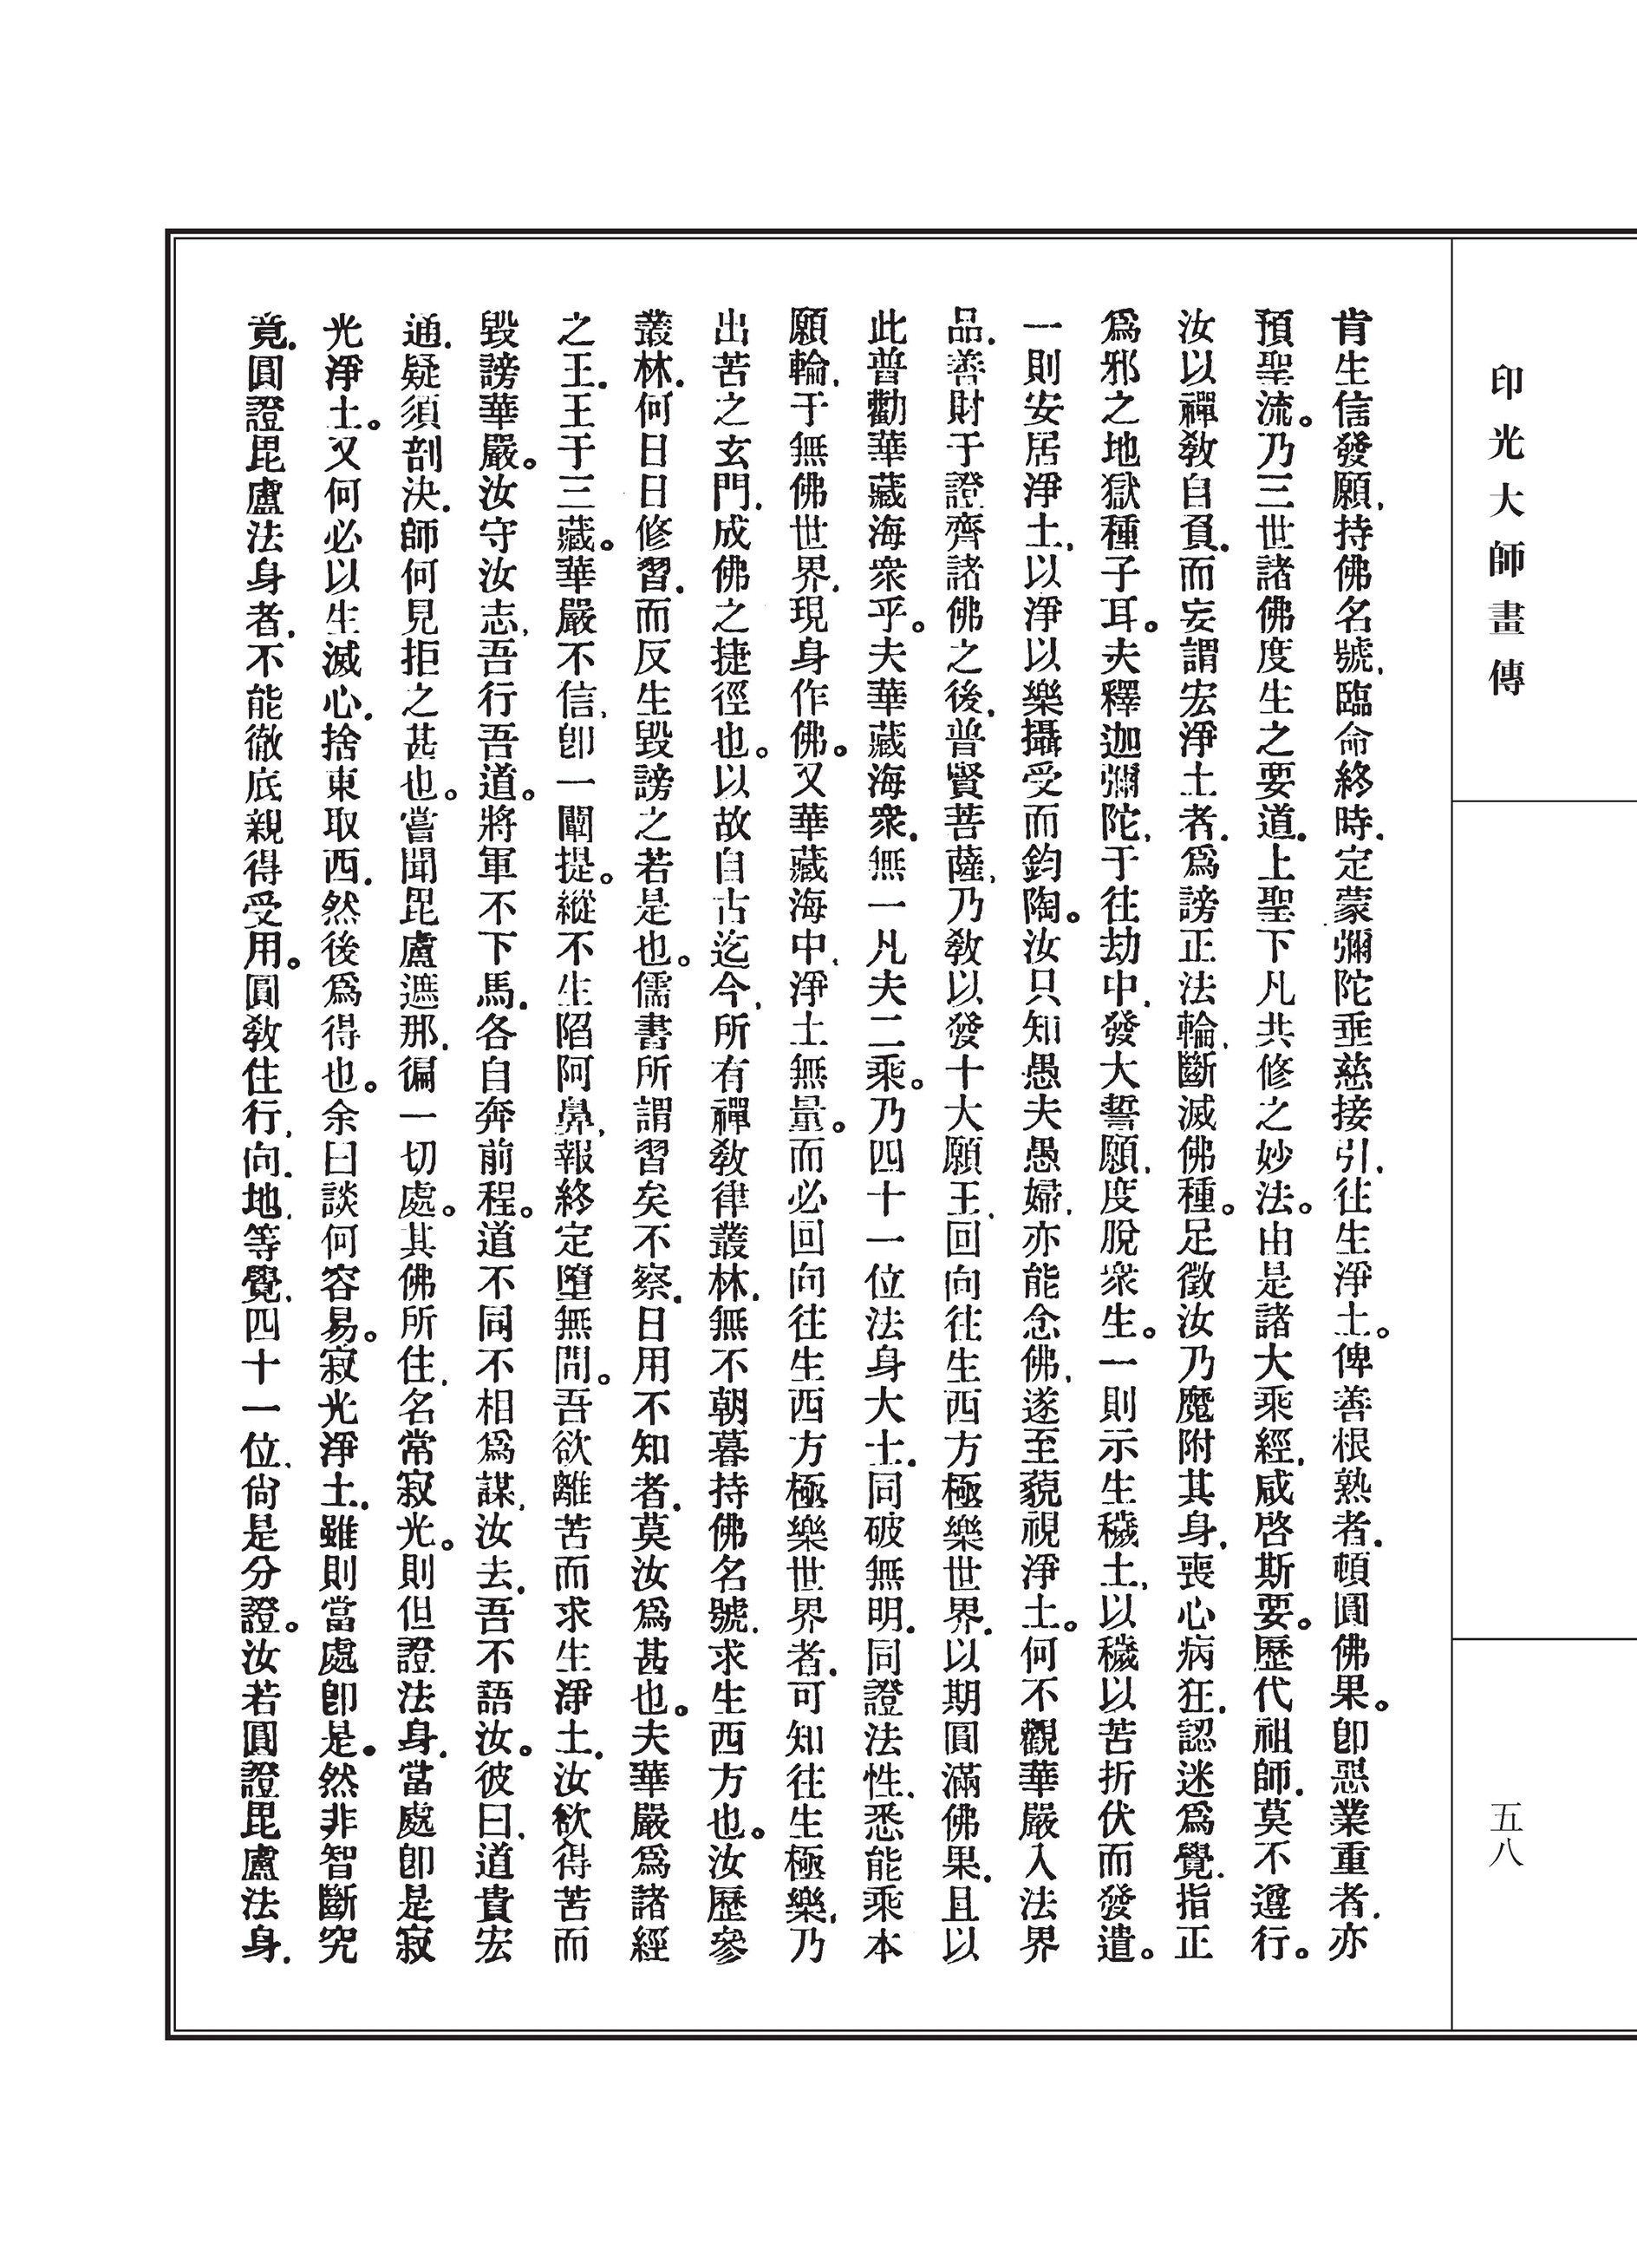 印光大師畫傳
五八
肯生信發願，持佛名號，臨命終時，定蒙彌陀垂慈接引，往生淨土。俾善根熟者，頓圓佛果。卽惡業重者，亦
預聖流。乃三世諸佛度生之要道，上聖下凡共修之妙法。由是諸大乘經，咸啓斯要。歷代祖師，莫不遵行。
汝以禪敎自負，而妄謂宏淨土者，爲謗正法輪，斷滅佛種。足徵汝乃魔附其身，喪心病狂，認迷爲覺，指正
爲邪之地獄種子耳。夫釋迦彌陀，于往劫中，發大誓願，度脫衆生。一則示生穢土，以穢以苦折伏而發遣。
一則安居淨土，以淨以樂攝受而鈞陶。汝只知愚夫愚婦，亦能念佛，遂至藐視淨土。何不觀華嚴入法界
品，善財于證齊諸佛之後，普賢菩薩，乃敎以發十大願王，回向往生西方極樂世界，以期圓滿佛果，且以
此普勸華藏海衆乎。夫華藏海衆，無一凡夫二乘。乃四十一位法身大士，同破無明，同證法性，悉能乘本
願輪，于無佛世界，現身作佛。又華藏海中，淨土無量。而必回向往生西方極樂世界者，可知往生極樂，乃
出苦之玄門，成佛之捷徑也。以故自古迄今，所有禪敎律叢林，無不朝暮持佛名號，求生西方也。汝歷參
叢林，何日日修習，而反生毀謗之若是也。儒書所謂習矣不察，日用不知者，莫汝爲甚也。夫華嚴爲諸經
之王，王于三藏。華嚴不信，卽一闡提。縱不生陷阿鼻，報終定墮無間。吾欲離苦而求生淨土，汝欲得苦而
毀謗華嚴。汝守汝志，吾行吾道。將軍不下馬，各自奔前程。道不同不相爲謀，汝去，吾不語汝。彼曰，道貴宏
通，疑須剖決，師何見拒之甚也。嘗聞毘盧遮那，徧一切處。其佛所住，名常寂光。則但證法身，當處卽是寂
光淨土。又何必以生滅心，捨東取西，然後爲得也。余曰談何容易。寂光淨土，雖則當處卽是。然非智斷究
竟，圓證毘盧法身者，不能徹底親得受用。圓敎住，行，向，地，等覺，四十一位，尙是分證。汝若圓證毘盧法身，